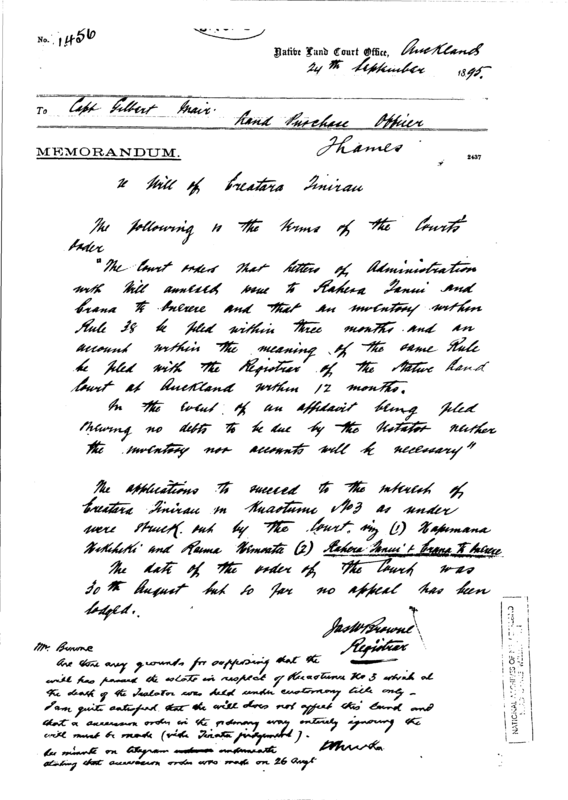 No. 1456
Native Land Court Office, Auckland
24th September 1895.
To Capt Gilbert Mair
Land Purchase Officer
Thames
MEMORANDUM.
2437
Will of Ereatara Tinirau
The following is the terms of the Court's
order
"The Court orders that Letters of Administration
with Will annexed issue to Rahera Tanui and
Erana te and that an inventory within
Rule 38 be filed within three months and an
account within the meaning of the same Rule
be filed with the Registrar of the Native Land
Court at Auckland within 12 months.
In the event of an affidavit being filed
shewing no debts to be due by the testator neither
the inventory nor accounts will be necessary"
The applications to succeed to the interest of
Ereatara Tinirau in Kuaotunu No 3 as under
were struck out by the Court viz (1) Hapimana
and (2) Rahera Tanui & Erana te
The date of the order of the Court was
30th August but so far no appeal has been
lodged.
Jas W Browne
Registrar
Mr. Browne
Are there any grounds for supposing that the
will has passed the estate in respect of Kuaotunu No 3 which at
the death of the Testator was held under customary title only -
I am quite satisfied that the will does not affect this land and
that a succession order in the ordinary way entirely ignoring the
will must be made (vide judgement).
See minute on telegram underneath
stating that succession order was made on 26 Augt
NATIONAL ARCHIVES OF